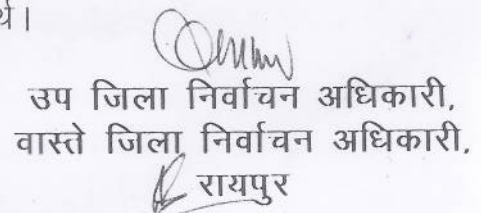 र्थ।
उप जिला निर्वाचन अधिकारी,
वास्ते जिला निर्वाचन अधिकारी,
रायपुर